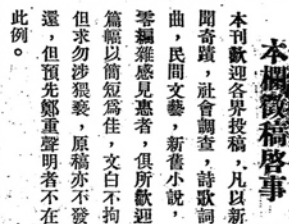 本欄徵稿啓事
本刊歡迎各界投稿，凡以新
聞奇蹟，社會調查，詩歌詞
曲，民間文藝，新舊小說，
零縑雜感見惠者，俱所歡迎
篇幅以簡短爲佳，文白不拘
但求勿涉猥褻，原稿亦不發
還，但預先鄭重聲明者不在
此例。